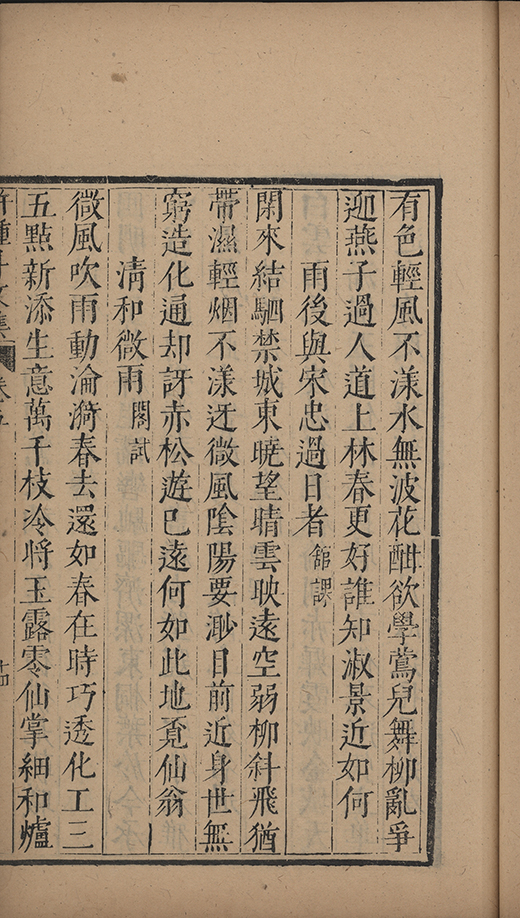 有色輕風不漾水無波花酣欲學鶯兒舞柳亂爭
迎燕子過人道上林春更好誰知淑景近如何
雨後與宋忠過日者 舘課
閑來結駟禁城東曉望晴雲映遠空弱柳斜飛猶
帶濕輕烟不漾迓微風陰陽要渺目前近身世無
窮造化通却訝赤松遊已遠何如此地覔仙翁
淸和微雨 閣試
微風吹雨動淪漪春去還如春在時巧透化工三
五點新添生意萬千枝冷將玉露零仙掌細和爐
卷五
十四